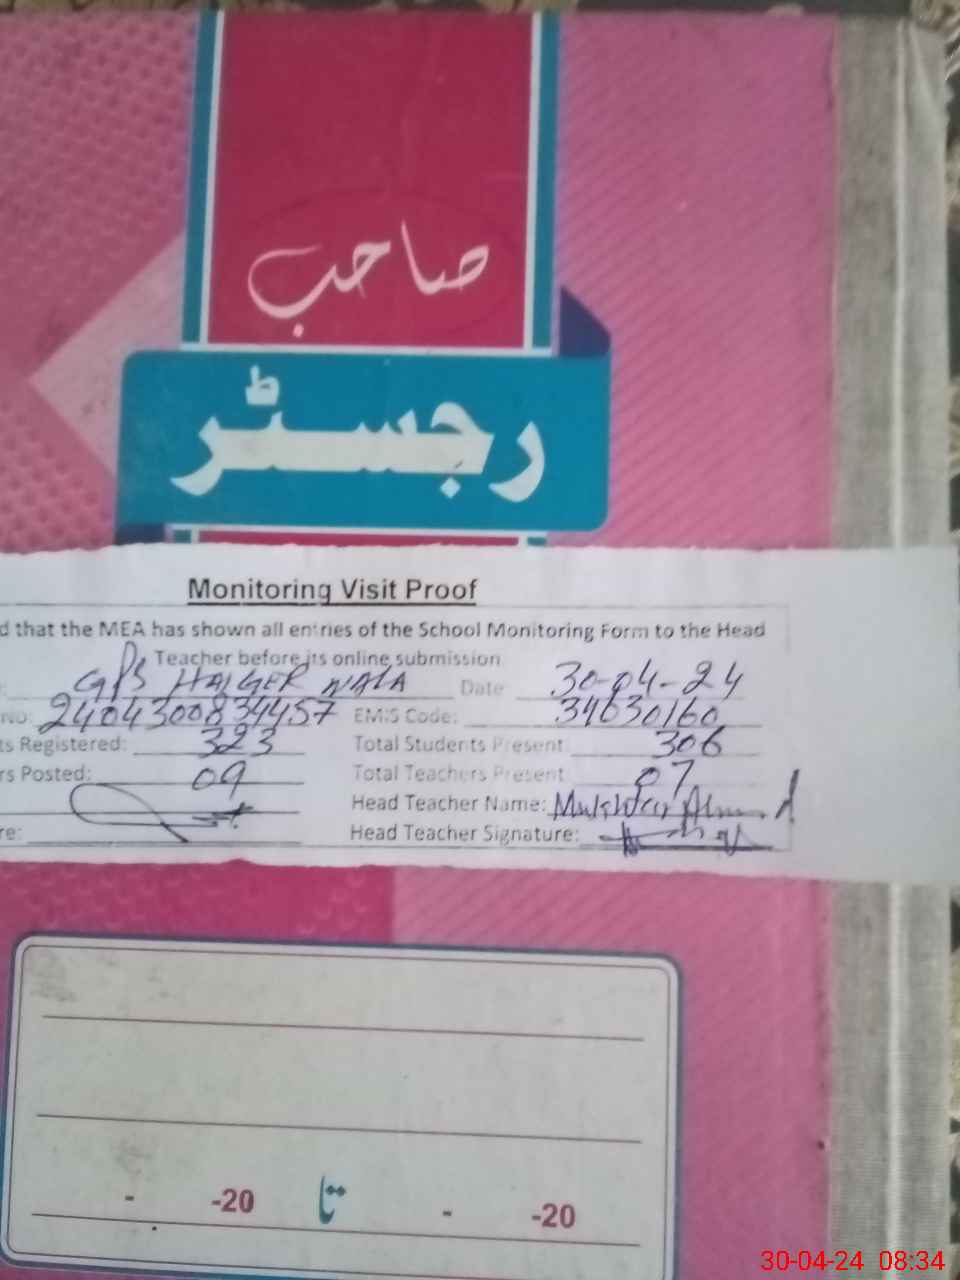 صاحب
رجسٹر
Monitoring Visit Proof
d that the MEA has shown all entries of the School Monitoring Form to the Head
Teacher before its online submission
GPS Date 30-04-24
No: 2404300834457 EMIS Code: 34630160
ts Registered: 323 Total Students Present 306
rs Posted: 09 Total Teachers Present 07
Head Teacher Name: Mukhtar Ahmad
re: Head Teacher Signature:
- -20 تا - -20
30-04-24 08:34